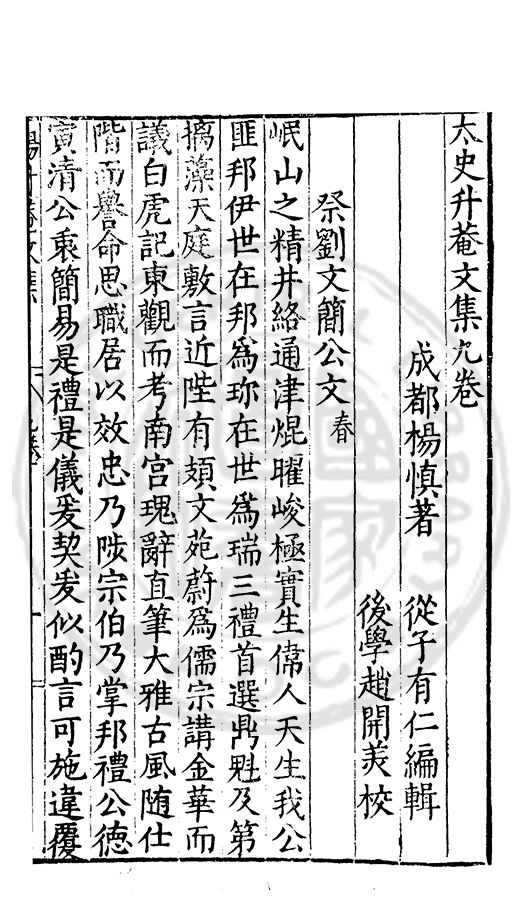 太史升菴文集九卷
成都楊慎著 從子有仁編輯
後學趙開美校
祭劉文簡公文 春
岷山之精井絡通津焜曜峻極實生偉人天生我公
匪邦伊世在邦爲珎在世爲瑞三禮首選鼎魁及第
摛藻天庭敷言近陛有頍文苑蔚爲儒宗講金華而
議白虎記東觀而考南宫瑰辭直筆大雅古風随仕
階而譽命思職居以效忠乃陟宗伯乃掌邦禮公德
寅清公秉簡易是禮是儀爰契爰似酌言可施違覆